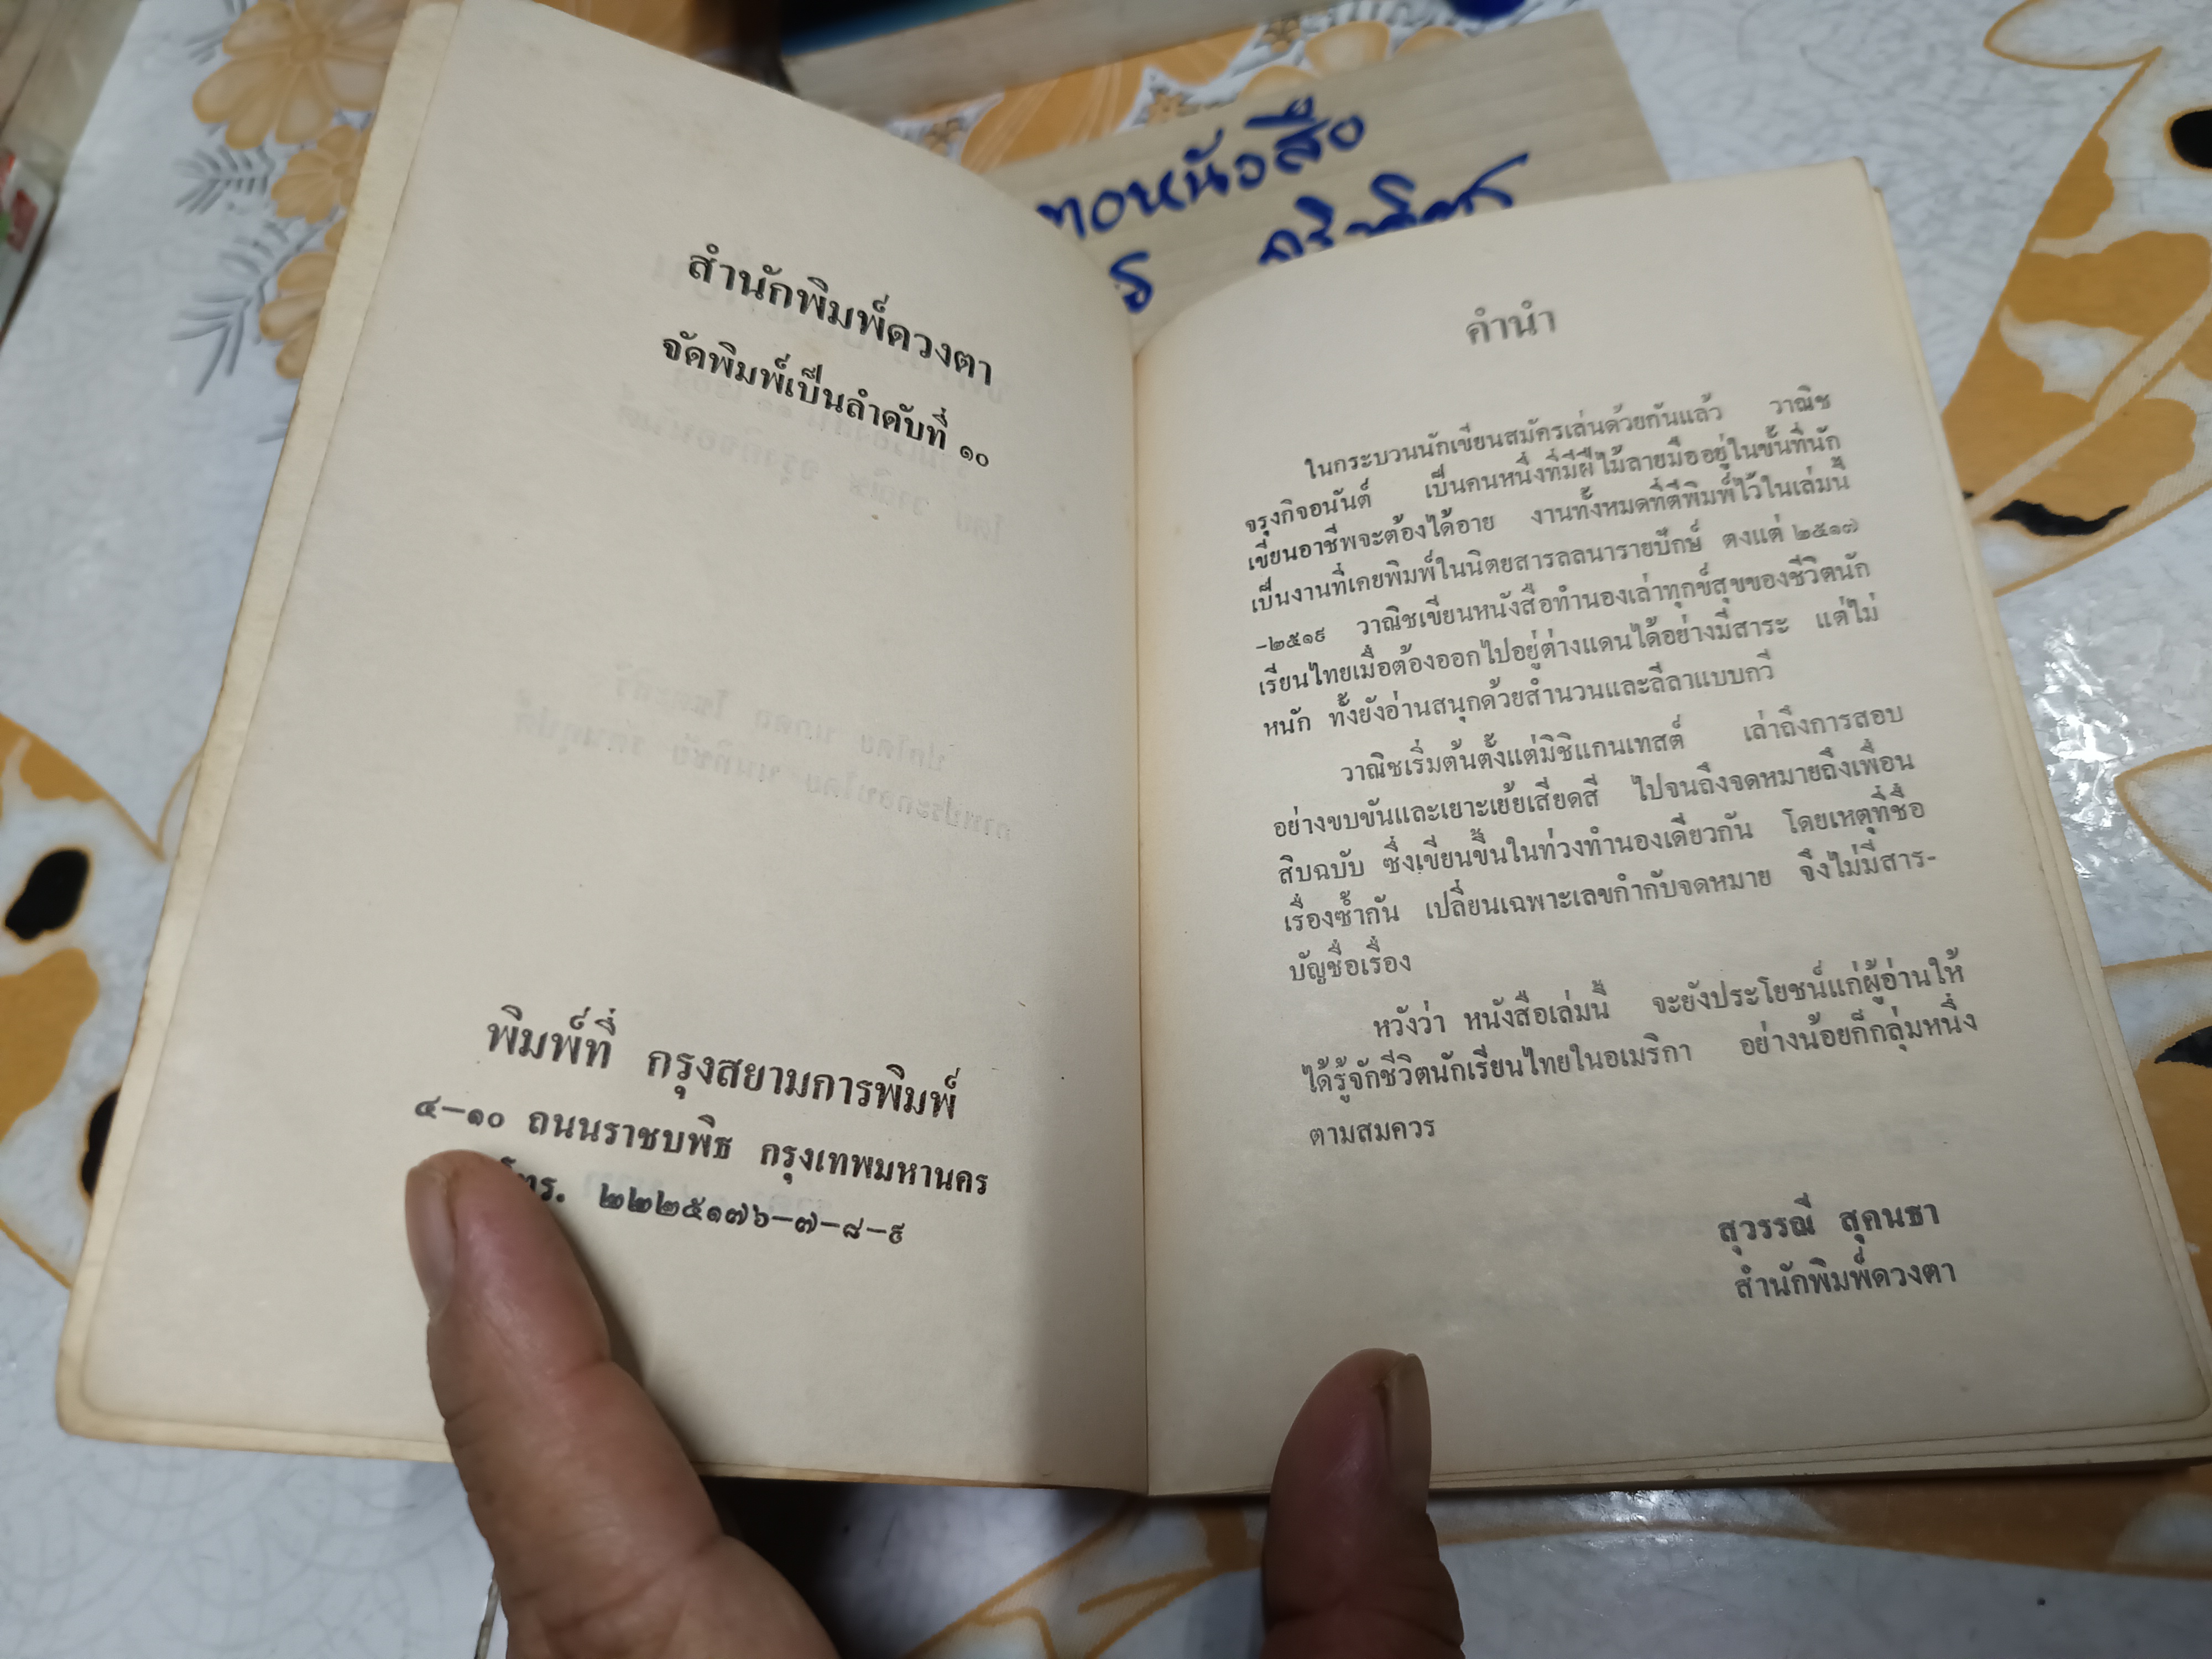 ทอหนังสือ
สำนักพิมพ์ดวงตา
จัดพิมพ์เป็นลำดับที่ ๑๐
พิมพ์ที่ กรุงสยามการพิมพ์
๔-๑๐ ถนนราชบพิธ กรุงเทพมหานคร
โทร. ๒๒๒๕๑๗๖-๗-๘-๙
คำนำ
ในกระบวนนักเขียนสมัครเล่นด้วยกันแล้ว วาณิช
จรุงกิจอนันต์ เป็นคนหนึ่งที่มีฝีไม้ลายมืออยู่ในขั้นที่นัก
เขียนอาชีพจะต้องได้อาย งานทั้งหมดที่ตีพิมพ์ไว้ในเล่มนี้
เป็นงานที่เคยพิมพ์ในนิตยสารลลนารายปักษ์ ตงแต่ ๒๕๑๗
-๒๕๑๙ วาณิชเขียนหนังสือทำนองเล่าทุกข์สุขของชีวิตนัก
เรียนไทยเมื่อต้องออกไปอยู่ต่างแดนได้อย่างมีสาระ แต่ไม่
หนัก ทั้งยังอ่านสนุกด้วยสำนวนและลีลาแบบกวี
วาณิชเริ่มต้นตั้งแต่มิชิแกนเทสต์ เล่าถึงการสอบ
อย่างขบขันและเยาะเย้ยเสียดสี ไปจนถึงจดหมายถึงเพื่อน
สิบฉบับ ซึ่งเขียนขึ้นในท่วงทำนองเดียวกัน โดยเหตุที่ชื่อ
เรื่องซ้ำกัน เปลี่ยนเฉพาะเลขกำกับจดหมาย จึงไม่มีสาร-
บัญชื่อเรื่อง
หวังว่า หนังสือเล่มนี้ จะยังประโยชน์แก่ผู้อ่านให้
ได้รู้จักชีวิตนักเรียนไทยในอเมริกา อย่างน้อยก็กลุ่มหนึ่ง
ตามสมควร
สุวรรณี สุคนธา
สำนักพิมพ์ดวงตา